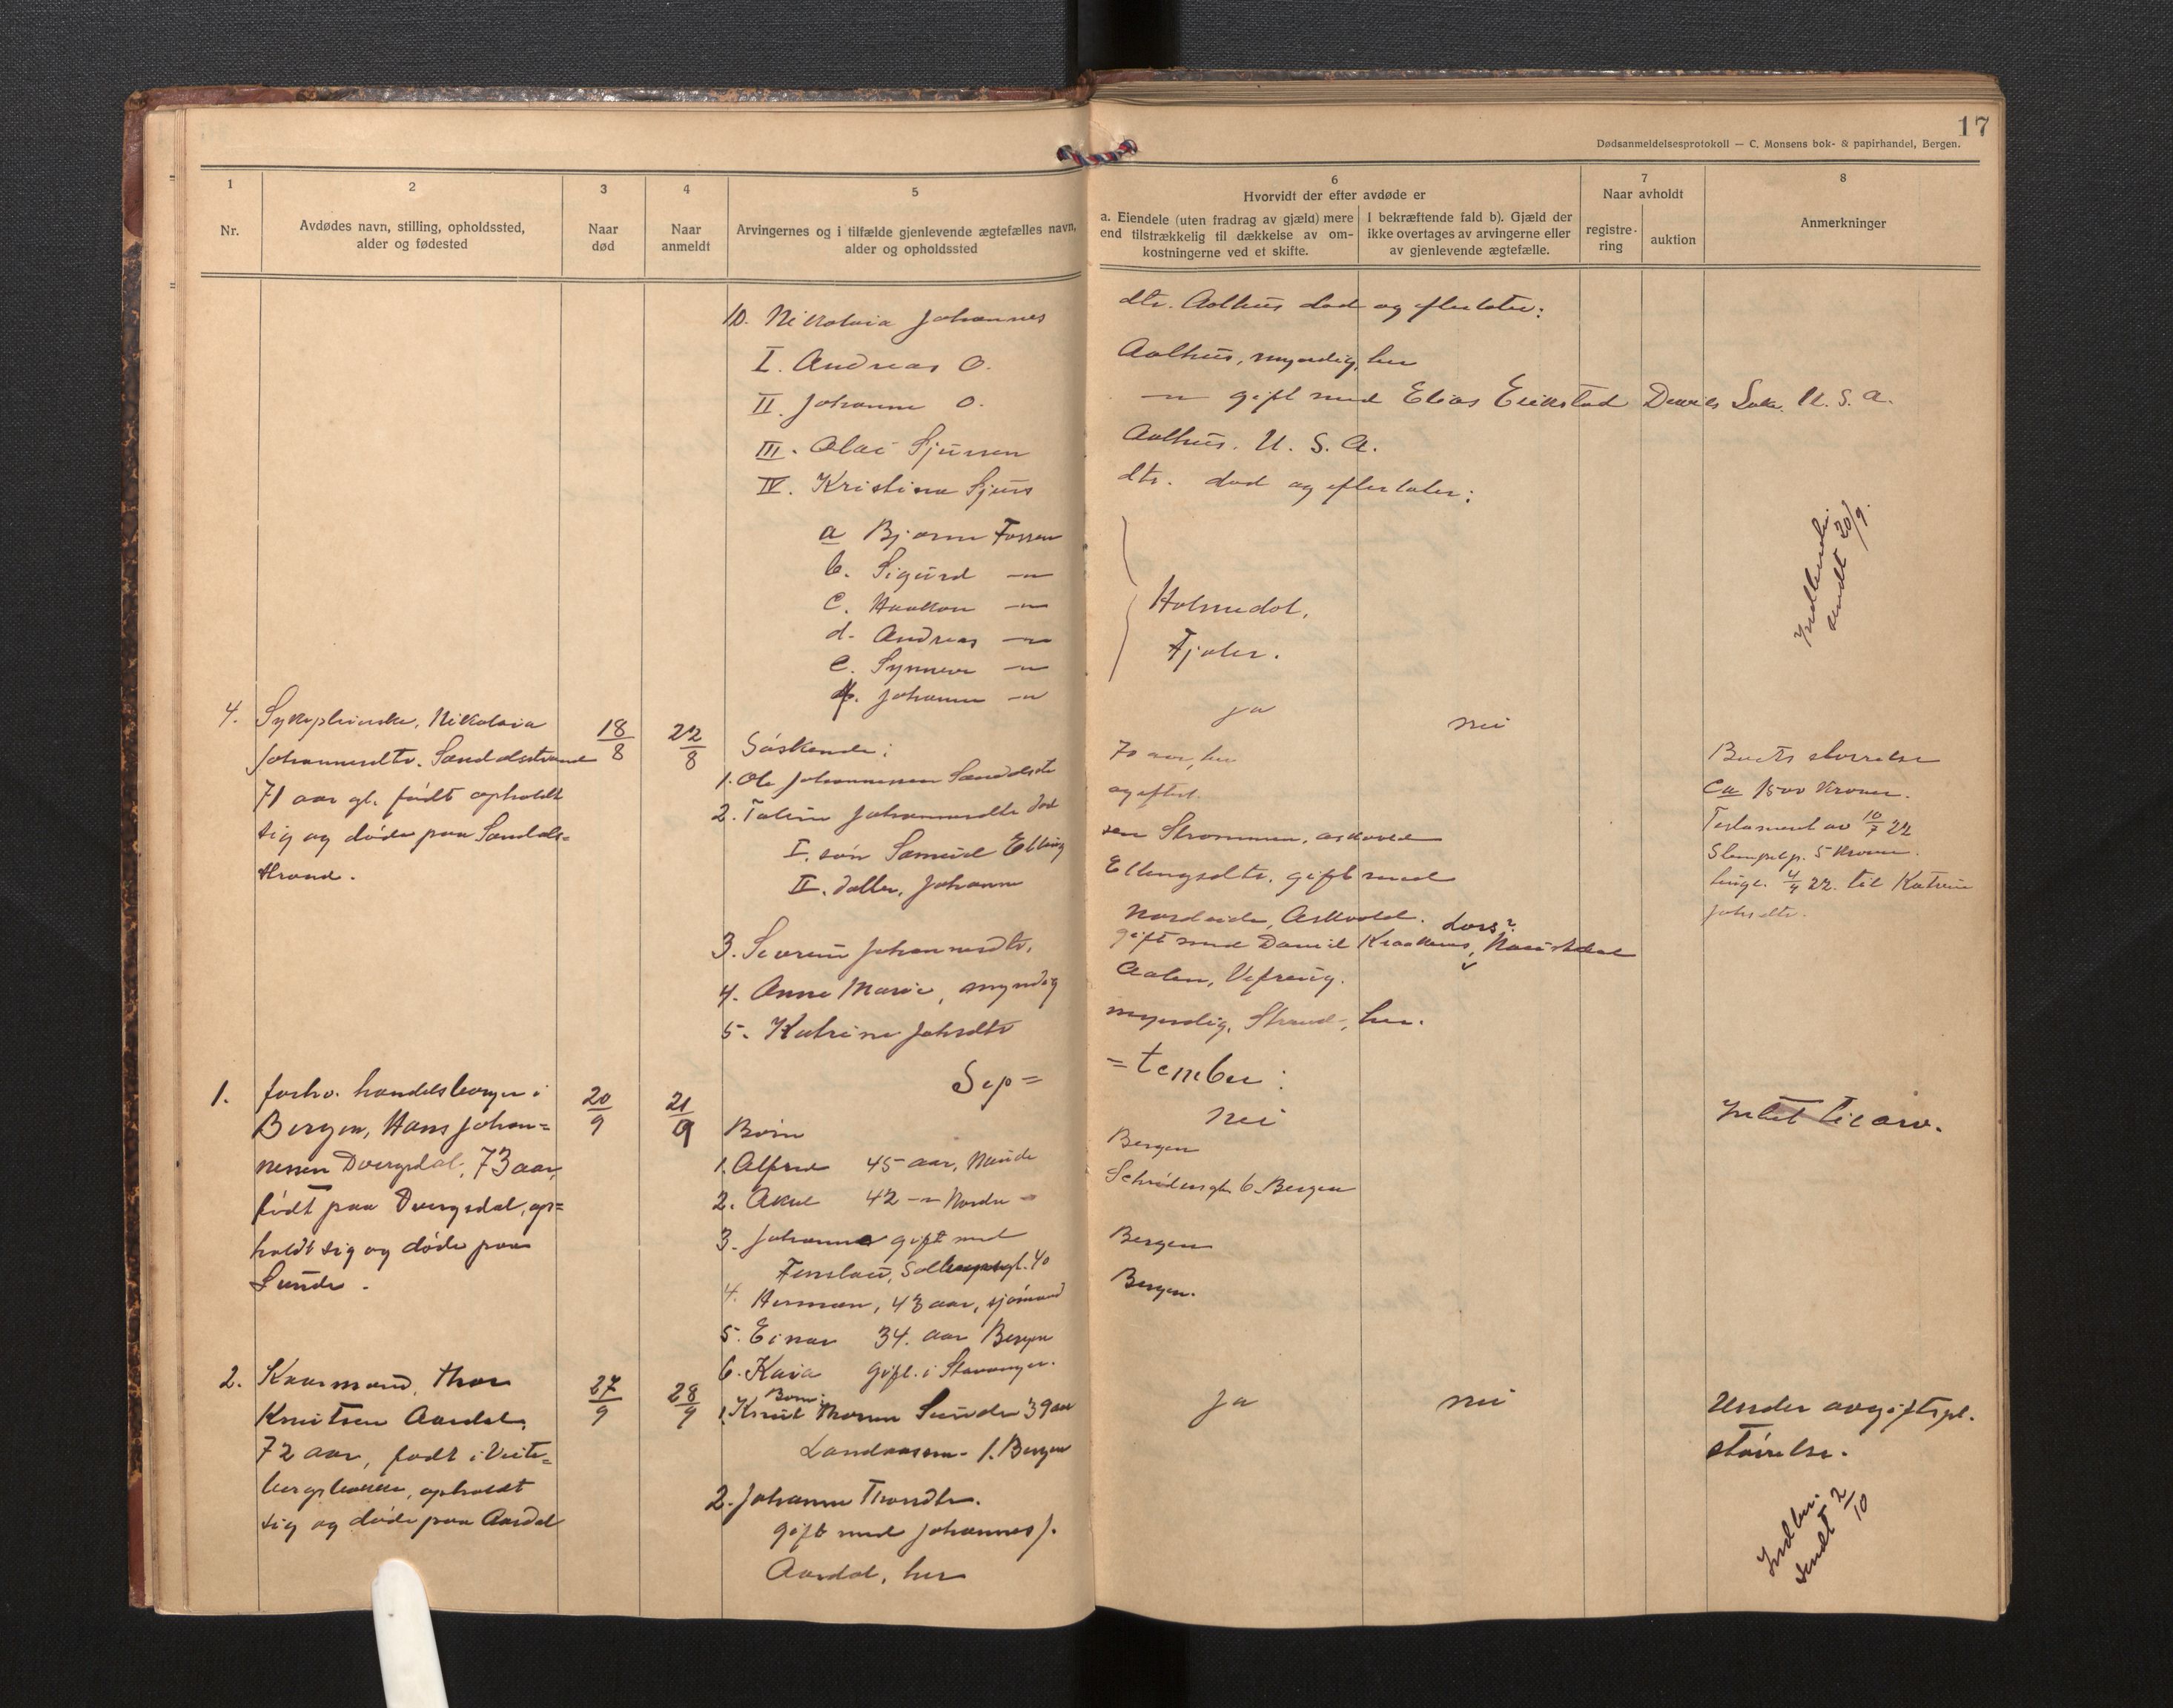 17
Dødsanmeldelsesprotokoll — C. Monsens bok- & papirhandel, Bergen.
1
Nr.
2
Avdødes navn, stilling, opholdssted,
alder og fødested
3
Naar
død
4
Naar
anmeldt
5
Arvingernes og i tilfælde gjenlevende ægtefælles navn,
alder og opholdssted
6
Hvorvidt der efter avdøde er
a. Eiendele (uten fradrag av gjæld) mere
end tilstrækkelig til dækkelse av om-
kostningerne ved et skifte.
I bekræftende fald b). Gjæld der
ikke overtages av arvingerne eller
av gjenlevende ægtefælle.
7
Naar avholdt
registre-
ring
auktion
8
Anmerkninger
10. Nikolaia Johannes dtr. Aalhus død og efterlater:
I. Andreas O. Aalhus, myndig, her
II. Johanne O. —"— gift med Elias Eikestad Devils Lake U. S. A.
III. Olai Sjursen Aalhus. U. S. A.
IV. Kristina Sjurs dtr. død og efterlater:
a Bjarne Fossen
b. Sigurd —"—
c. Haakon —"—
d. Andreas —"—
e. Synneve —"—
f. Johanne —"—
Holmedal,
Fjaler.
sendt 20/9.
4. Sykepleierske, Nikolaia
Johannesdtr. Sandalsstrand
71 aar gl. født opholdt
sig og døde paa Sandals=
strand.
18/8
22/8
ja
nei
Søskende:
1. Ole Johannessen Sandalsstr 70 aar, her
2. Taline Johannesdtr død og efterl.
I. søn Samuel Elling sen Strømmen, Askvold
II. datter, Johanne Ellingsdtr. gift med
Nordeide, Askvold.
3. Severine Johannesdtr. gift med Daniel Kraakenes, Naustdal
4. Anne Marie, myndig Aalen, Vefring.
5. Katrine Johsdtr myndig, Strand, her.
Boets størrelse
Ca 1500 Kroner.
Testament av 10/7 22
Stempelp. 5 Kroner.
til Katrine
Johsdtr.
Sep= =tember:
1. forhv. handelsborger i
Bergen, Hans Johan=
nessen Dvergsdal, 73 aar,
født paa Dvergsdal, op=
holdt sig og døde paa
Sunde.
20/9
21/9
nei
Intet til arv.
Børn
1. Alfred 45 aar, Bergen
2. Aksel 42 —"— Nordre Bergen
3. Johanne gift med Bergen
gt. 40
4. Herman, 43 aar, sjømand Bergen.
5. Einar 34. aar Bergen
6. Kaia gift. i Stavanger.
2. Kaarmand, Thor
Knutsen Aardal,
72 aar, født i Veite=
bergsbotnen, opholdt
sig og døde paa Aardal
27/9
28/9
Børn:
1. Knut Thorsen Sunde 39 aar
Bergen
2. Johanne Thorsdtr.
gift med Johannes J.
Aardal, her
ja
nei
Under avgiftspl.
størrelse.
Indber.
sendt 2/10